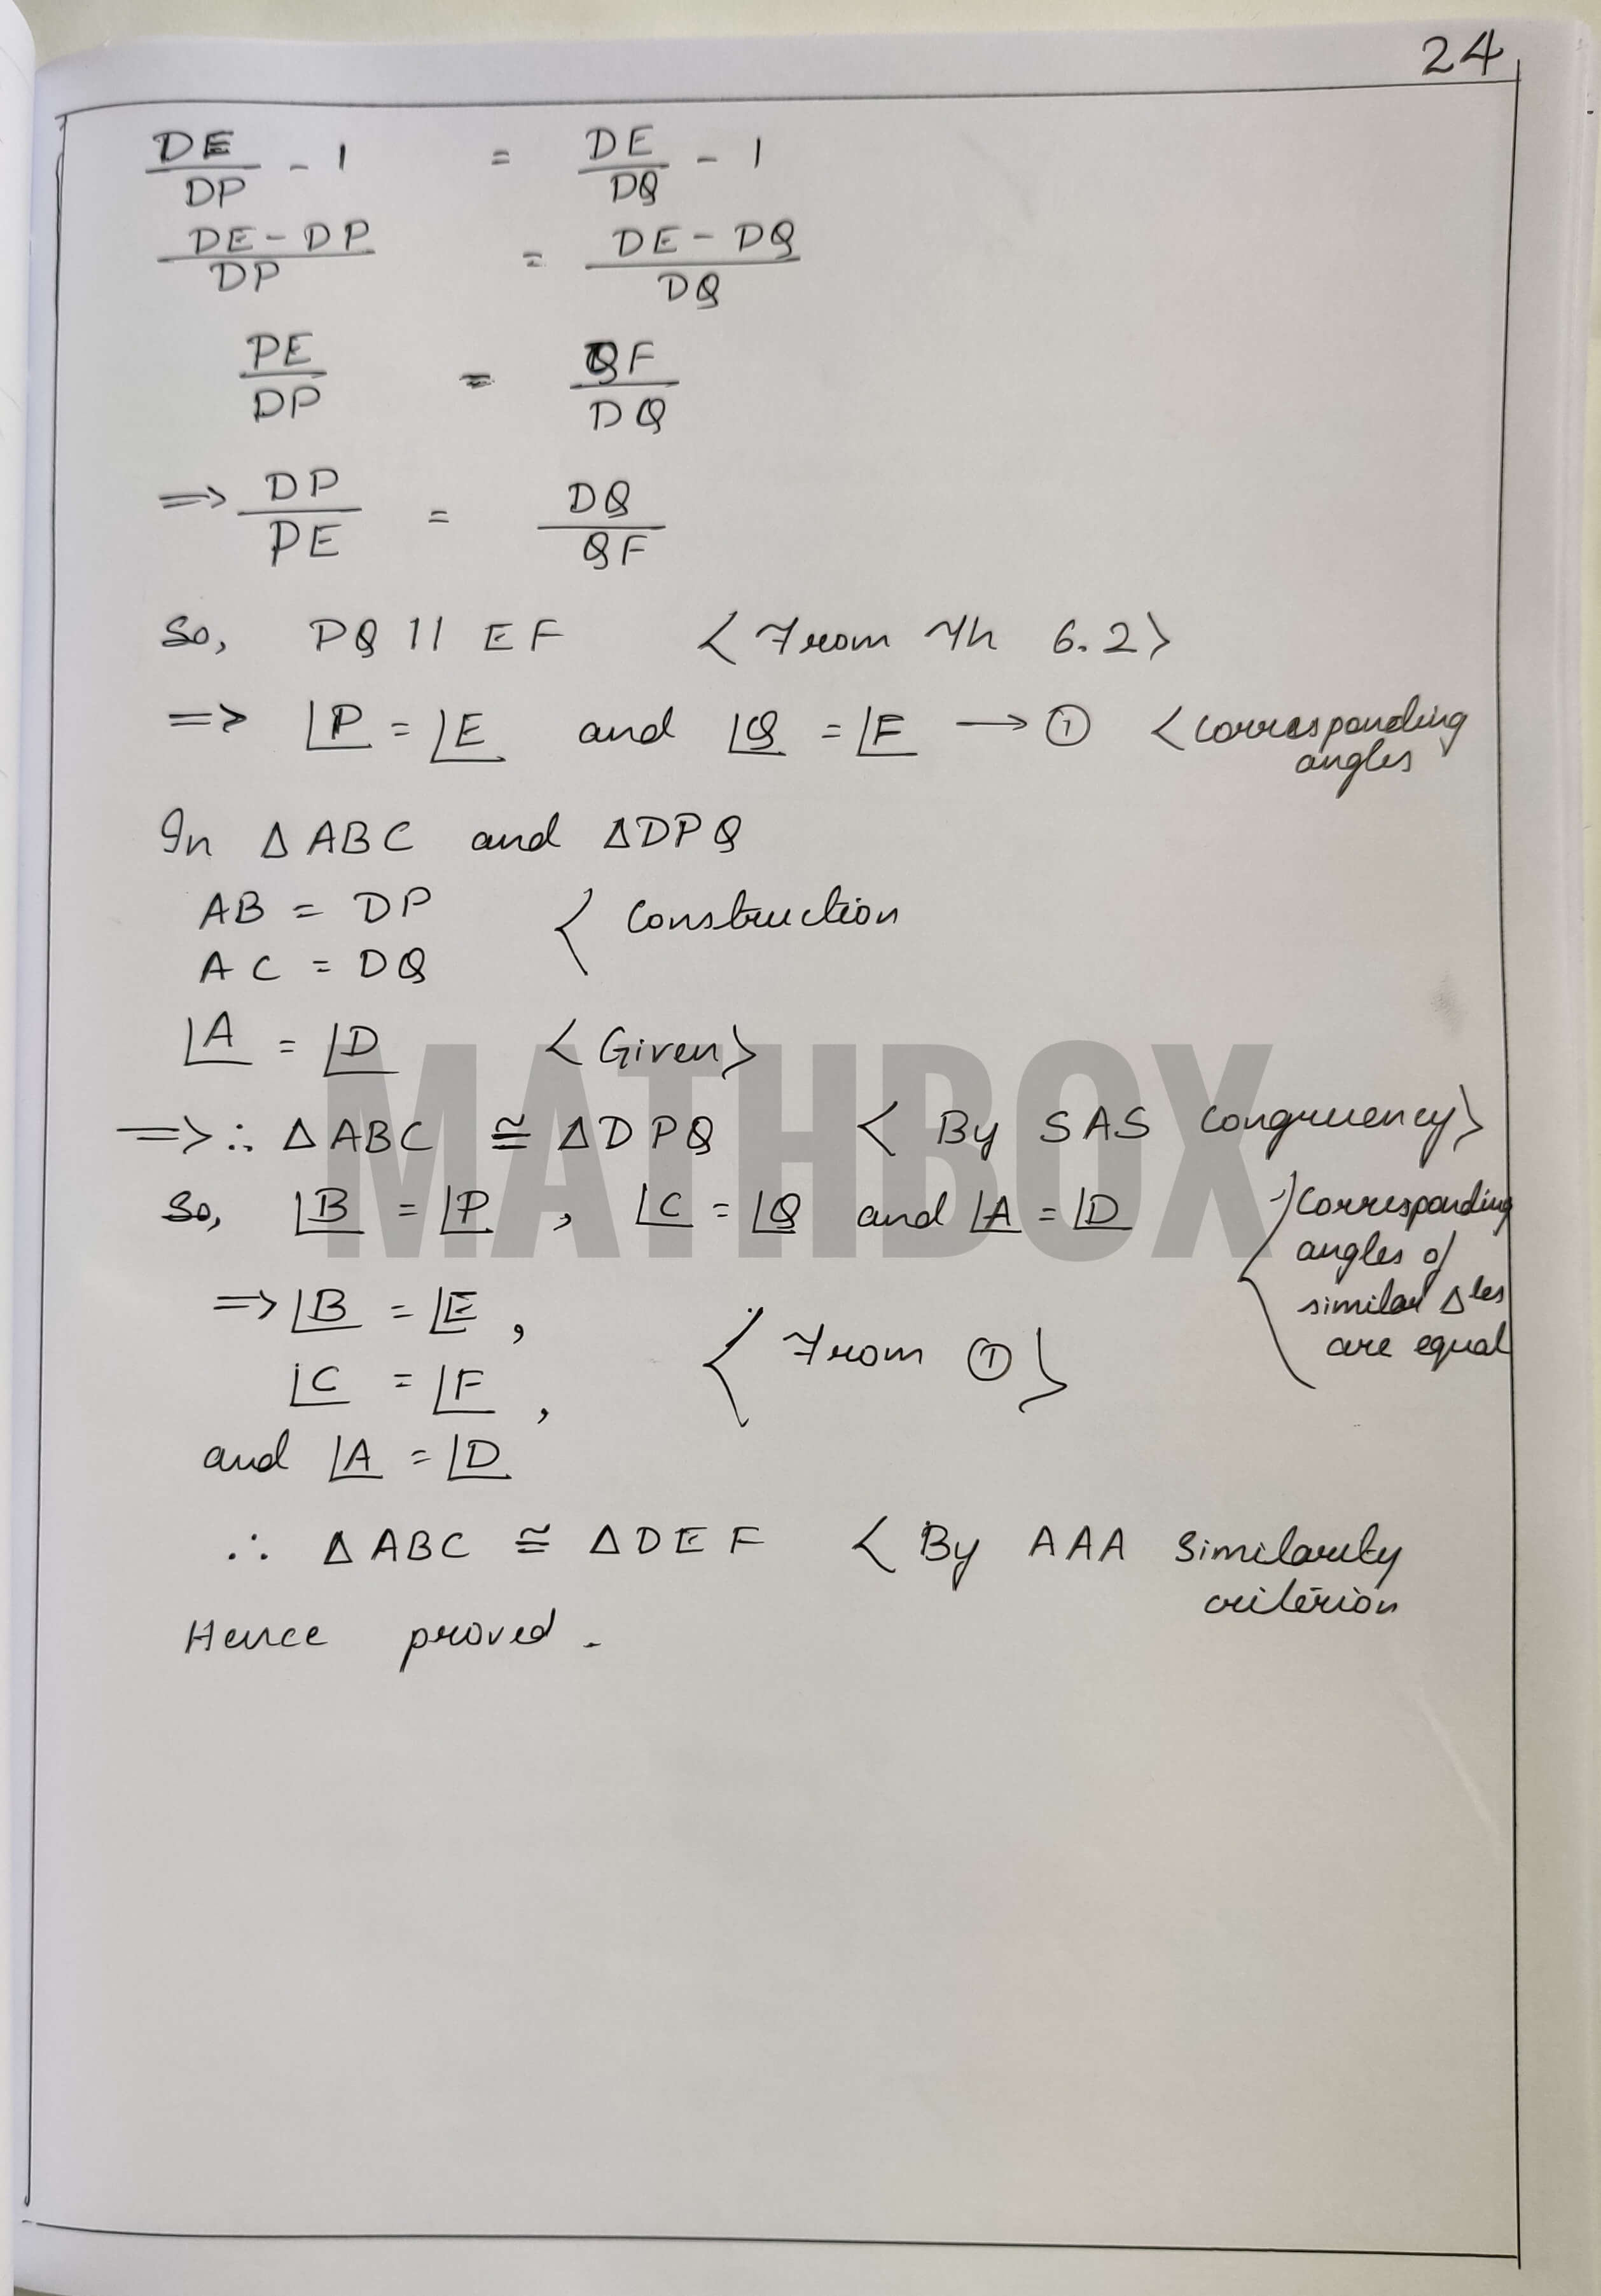 24
DE/DP - 1 = DE/DQ - 1
DE - DP/DP = DE - DQ/DQ
PE/DP = QF/DQ
=> DP/PE = DQ/QF
So, PQ || EF < From Th 6.2>
=> ∠P = ∠E and ∠Q = ∠F → ① < corresponding
angles
In Δ ABC and ΔDPQ
AB = DP < Construction
AC = DQ
∠A = ∠D < Given>
=> ∴ Δ ABC ≅ ΔDPQ < By SAS Congruency>
So, ∠B = ∠P , ∠C = ∠Q and ∠A = ∠D < Corresponding
angles of
similar Δles
are equal
=> ∠B = ∠E ,
∠C = ∠F , < From ① >
and ∠A = ∠D
∴ Δ ABC ≅ ΔDEF < By AAA Similarity
criterion
Hence proved.
MATHBOX